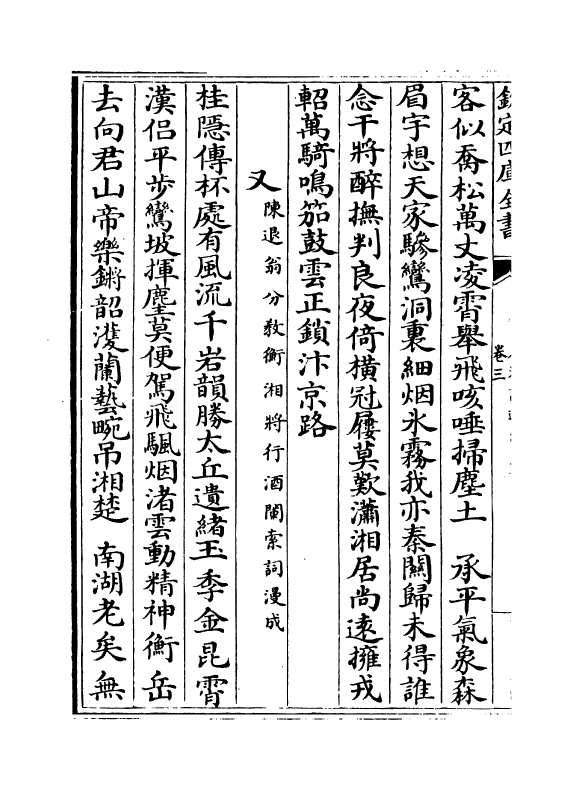 欽定四庫全書
卷三
客似喬松萬丈凌霄舉飛咳唾掃塵土　承平氣象森
眉宇想天家驂鸞洞裏細烟氷霧我亦秦關歸未得誰
念干將醉撫判良夜倚橫冠屨莫歎瀟湘居尚逺擁戎
軺萬騎鳴笳鼓雲正鎖汴京路
又陳退翁分教衡湘將行酒闌索詞漫成
桂隱傳杯處有風流千岩韻勝太丘遺緒玉季金昆霄
漢侶平步鸞坡揮麈莫便駕飛颿烟渚雲動精神衡岳
去向君山帝樂鏘韶濩蘭藝畹吊湘楚　南湖老矣無